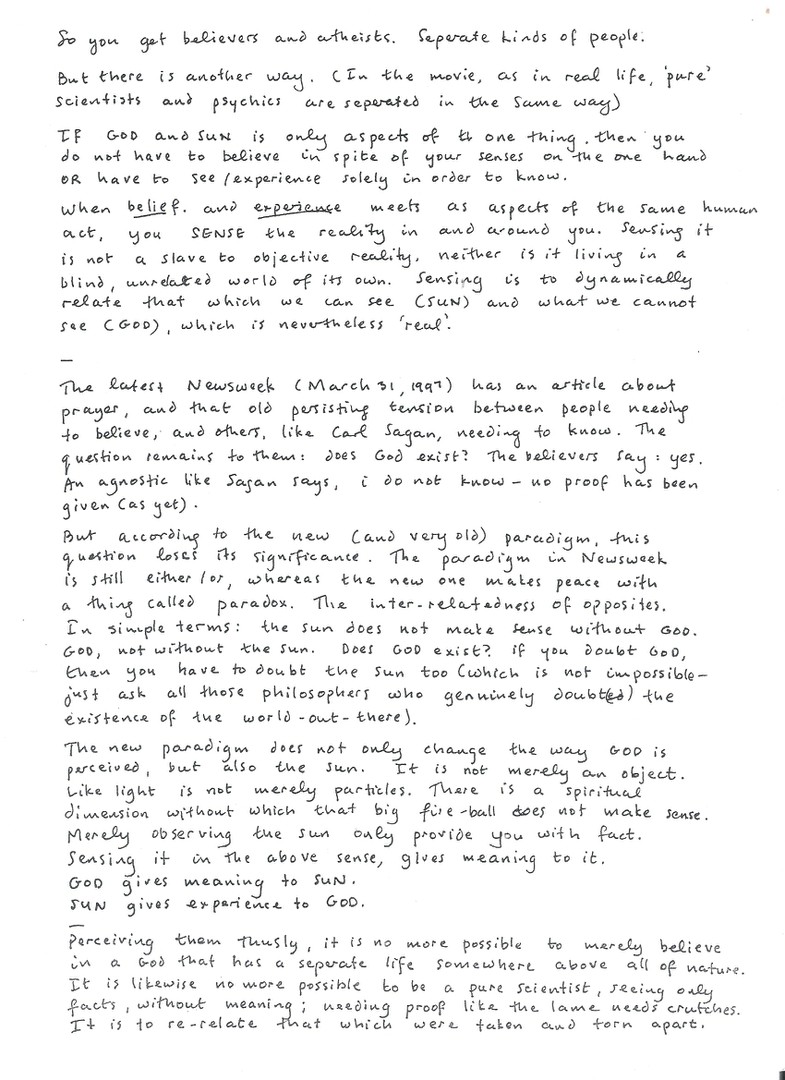 So you get believers and atheists. Seperate kinds of people.
But there is another way. (In the movie, as in real life, 'pure'
scientists and psychics are seperated in the same way)
IF GOD and SUN is only aspects of one thing, then you
do not have to believe in spite of your senses on the one hand
OR have to see/experience solely in order to know.
When belief. and experience meets as aspects of the same human
act, you SENSE the reality in and around you. Sensing it
is not a slave to objective reality, neither is it living in a
blind, unrelated world of its own. Sensing is to dynamically
relate that which we can see (SUN) and what we cannot
see (GOD), which is nevertheless 'real'.
—
The latest Newsweek (March 31, 1997) has an article about
prayer, and that old persisting tension between people needing
to believe, and others, like Carl Sagan, needing to know. The
question remains to them: does God exist? The believers say: yes.
An agnostic like Sagan says, i do not know – no proof has been
given (as yet).
But according to the new (and very old) paradigm, this
question loses its significance. The paradigm in Newsweek
is still either/or, whereas the new one makes peace with
a thing called paradox. The inter-relatedness of opposites.
In simple terms: the sun does not make sense without GOD.
GOD, not without the sun. Does GOD exist? if you doubt GOD,
then you have to doubt the sun too (which is not impossible–
just ask all those philosophers who genuinely doubt(ed) the
existence of the world-out-there).
The new paradigm does not only change the way GOD is
perceived, but also the sun. It is not merely an object.
Like light is not merely particles. There is a spiritual
dimension without which that big fire-ball does not make sense.
Merely observing the sun only provide you with fact.
Sensing it in the above sense, gives meaning to it.
GOD gives meaning to SUN.
SUN gives experience to GOD.
—
Perceiving them thusly, it is no more possible to merely believe
in a God that has a seperate life somewhere above all of nature.
It is likewise no more possible to be a pure scientist, seeing only
facts, without meaning; needing proof like the lame needs crutches.
It is to re-relate that which were taken and torn apart.